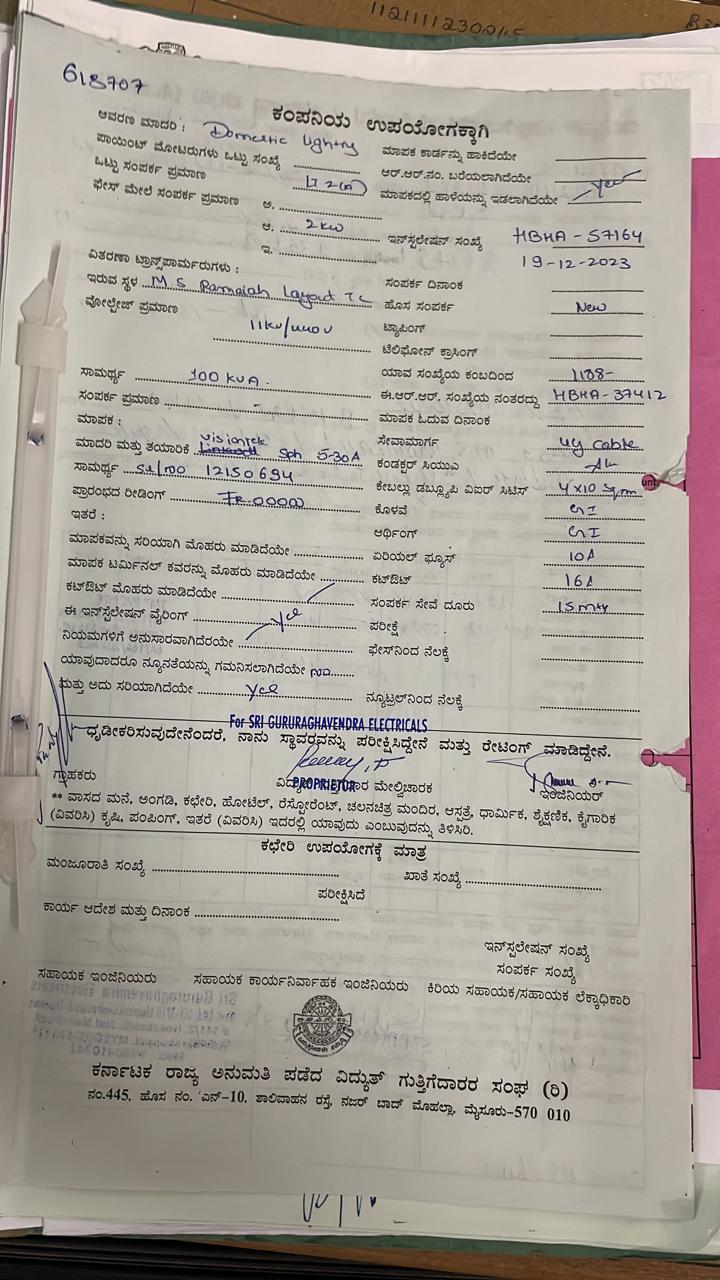 1121111230
618707
ಕಂಪನಿಯ ಉಪಯೋಗಕ್ಕಾಗಿ
ಆವರಣ ಮಾದರಿ : Domestic lighting
ಮಾಪಕ ಕಾರ್ಡನ್ನು ಹಾಕಿದೆಯೇ
ಪಾಯಿಂಟ್ ಮೋಟರುಗಳು ಒಟ್ಟು ಸಂಖ್ಯೆ
ಆರ್.ಆರ್.ನಂ. ಬರೆಯಲಾಗಿದೆಯೇ
ಒಟ್ಟು ಸಂಪರ್ಕ ಪ್ರಮಾಣ LT 2(a)
ಮಾಪಕದಲ್ಲಿ ಹಾಳೆಯನ್ನು ಇಡಲಾಗಿದೆಯೇ yes
ಫೇಸ್ ಮೇಲೆ ಸಂಪರ್ಕ ಪ್ರಮಾಣ ಅ.
ಆ. 2kw
ಇನ್‌ಸ್ಟಲೇಷನ್ ಸಂಖ್ಯೆ HBHA-57164
ಇ.
19-12-2023
ವಿತರಣಾ ಟ್ರಾನ್ಸ್‌ಪಾರ್ಮರುಗಳು :
ಸಂಪರ್ಕ ದಿನಾಂಕ
ಇರುವ ಸ್ಥಳ M S Ramaiah Layout TC
ಹೊಸ ಸಂಪರ್ಕ New
ವೋಲ್ಟೇಜ್ ಪ್ರಮಾಣ 11kv/440v
ಟ್ಯಾಪಿಂಗ್
ಟೆಲಿಫೋನ್ ಕ್ರಾಸಿಂಗ್
ಸಾಮರ್ಥ್ಯ 100 KVA.
ಯಾವ ಸಂಖ್ಯೆಯ ಕಂಬದಿಂದ
ಸಂಪರ್ಕ ಪ್ರಮಾಣ -
ಈ.ಆರ್.ಆರ್. ಸಂಖ್ಯೆಯ ನಂತರದ್ದು HBHA-37412
ಮಾಪಕ :
ಮಾಪಕ ಓದುವ ದಿನಾಂಕ
ಮಾದರಿ ಮತ್ತು ತಯಾರಿಕೆ Visiontek Sph 5-30A
ಸೇವಾಮಾರ್ಗ UG cable
ಸಾಮರ್ಥ್ಯ Sl/no 12150694
ಕಂಡಕ್ಟರ್ ಸಿಯುಎ
ಪ್ರಾರಂಭದ ರೀಡಿಂಗ್ FR 00000
ಕೇಬಲ್ಲು ಡಬ್ಲ್ಯೂಪಿ ವಿಐರ್ ಸಿಟಿಸ್ 4x10 Sqmm
ಇತರೆ :
ಕೊಳವೆ GI
ಮಾಪಕವನ್ನು ಸರಿಯಾಗಿ ಮೊಹರು ಮಾಡಿದೆಯೇ
ಆರ್ಥಿಂಗ್ GI
ಮಾಪಕ ಟರ್ಮಿನಲ್ ಕವರನ್ನು ಮೊಹರು ಮಾಡಿದೆಯೇ
ಏರಿಯಲ್ ಫ್ಯೂಸ್ 10A
ಕಟ್‌ಔಟ್ ಮೊಹರು ಮಾಡಿದೆಯೇ
ಕಟ್‌ಔಟ್ 16A
ಈ ಇನ್‌ಸ್ಟಲೇಷನ್ ವೈರಿಂಗ್ yes
ಸಂಪರ್ಕ ಸೇವೆ ದೂರು 15mtr
ನಿಯಮಗಳಿಗೆ ಅನುಸಾರವಾಗಿದೆರಯೇ
ಪರೀಕ್ಷೆ
ಯಾವುದಾದರೂ ನ್ಯೂನತೆಯನ್ನು ಗಮನಿಸಲಾಗಿದೆಯೇ no
ಫೇಸ್‌ನಿಂದ ನೆಲಕ್ಕೆ
ಮತ್ತು ಅದು ಸರಿಯಾಗಿದೆಯೇ yes
ನ್ಯೂಟ್ರಲ್‌ನಿಂದ ನೆಲಕ್ಕೆ
For SRI GURURAGHAVENDRA ELECTRICALS
ಧೃಡೀಕರಿಸುವುದೇನೆಂದರೆ, ನಾನು ಸ್ಥಾವರವನ್ನು ಪರೀಕ್ಷಿಸಿದ್ದೇನೆ ಮತ್ತು ರೇಟಿಂಗ್ ಮಾಡಿದ್ದೇನೆ.
ಗ್ರಾಹಕರು
PROPRIETOR
ಮೇಲ್ವಿಚಾರಕ
ಇಂಜಿನಿಯರ್
** ವಾಸದ ಮನೆ, ಅಂಗಡಿ, ಕಛೇರಿ, ಹೋಟೆಲ್, ರೆಸ್ಟೋರೆಂಟ್, ಚಲನಚಿತ್ರ ಮಂದಿರ, ಆಸ್ಪತ್ರೆ, ಧಾರ್ಮಿಕ, ಶೈಕ್ಷಣಿಕ, ಕೈಗಾರಿಕ
(ವಿವರಿಸಿ) ಕೃಷಿ, ಪಂಪಿಂಗ್, ಇತರೆ (ವಿವರಿಸಿ) ಇದರಲ್ಲಿ ಯಾವುದು ಎಂಬುವುದನ್ನು ತಿಳಿಸಿರಿ.
ಕಛೇರಿ ಉಪಯೋಗಕ್ಕೆ ಮಾತ್ರ
ಮಂಜೂರಾತಿ ಸಂಖ್ಯೆ
ಖಾತೆ ಸಂಖ್ಯೆ
ಪರೀಕ್ಷಿಸಿದೆ
ಕಾರ್ಯ ಆದೇಶ ಮತ್ತು ದಿನಾಂಕ
ಇನ್‌ಸ್ಪಲೇಷನ್ ಸಂಖ್ಯೆ
ಸಂಪರ್ಕ ಸಂಖ್ಯೆ
ಸಹಾಯಕ ಇಂಜಿನಿಯರು ಸಹಾಯಕ ಕಾರ್ಯನಿರ್ವಾಹಕ ಇಂಜಿನಿಯರು ಕಿರಿಯ ಸಹಾಯಕ/ಸಹಾಯಕ ಲೆಕ್ಕಾಧಿಕಾರಿ
ಕರ್ನಾಟಕ ರಾಜ್ಯ ಅನುಮತಿ ಪಡೆದ ವಿದ್ಯುತ್ ಗುತ್ತಿಗೆದಾರರ ಸಂಘ (ರಿ)
ನಂ.445, ಹೊಸ ನಂ. ಎನ್-10, ಶಾಲಿವಾಹನ ರಸ್ತೆ, ನಜರ್ ಬಾದ್ ಮೊಹಲ್ಲಾ, ಮೈಸೂರು-570 010